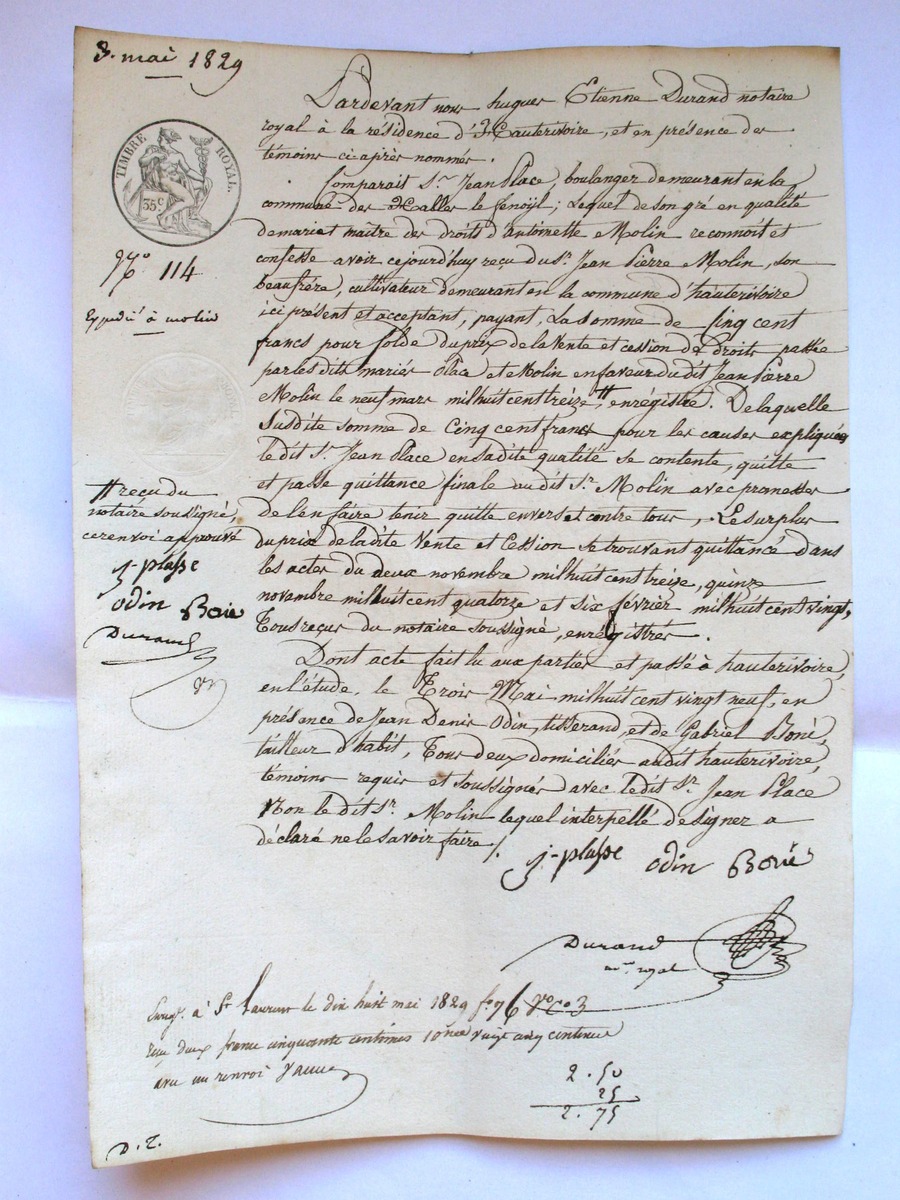 3. mai 1829
TIMBRE ROYAL.
35 c
N.° 114
Expedié à molin
Pardevant nous hugues Etienne Durand notaire
royal à la résidence d'Hauterivoire, et en présence des
témoins ci après nommés.
Comparait S.r Jean Place, boulanger demeurant en la
commune des Halles le fenoÿl; Lequel de son gré en qualité
de mari et maitre des droits d'antoinette Molin reconnoit et
confesse avoir cejourd'huy reçu du S.r Jean Pierre Molin, son
beaufrére, cultivateur demeurant en la commune d'hauterivoire
ici présent et acceptant, payant, La somme de Cinq cent
francs pour solde du prix de la vente et cession de droits passée
par les dits mariés Place et Molin en faveur du dit Jean Pierre
Molin le neuf mars milhuit cent treize, # enrégistré. De laquelle
susdite somme de Cinq cent francs pour les causes expliquées
le dit S.r Jean Place en sadite qualité se contente, quitte
et passe quittance finale au dit S.r Molin avec promesses
de l'en faire tenir quitte envers et contre tous, Le surplus
du prix de ladite Vente et Cession se trouvant quittancé dans
les actes du deux novembre milhuit cent treize, quinze
novembre milhuit cent quatorze et six février milhuit cent vingt,
Tous reçus du notaire soussigné, enrégistrés.
# reçu du
notaire soussigné,
ce renvoi approuvé
j-plasse
odin Boié
Durand
Dont acte fait lu aux parties et passé à hauterivoire,
en l'étude, le Trois Mai milhuit cent vingt neuf, en
présance de Jean Denis Odin, tisserand, et de Gabriel Boné,
tailleur d'habit, Tous deux domiciliés audit hauterivoire,
témoins requis et soussignés avec ledit S.r Jean Place
Non le dit S.r Molin lequel interpellé de signer a
déclaré ne le savoir faire /.
j-plasse odin Boié
Durand
n.re royal
Enreg.é à S.t Laurent le dix huit mai 1829 f.o 76 V.o C.o 3
reçu deux francs cinquante centimes 10me vingt cinq centimes
avec un renvoi
2. 50
25
2. 75
D. T.